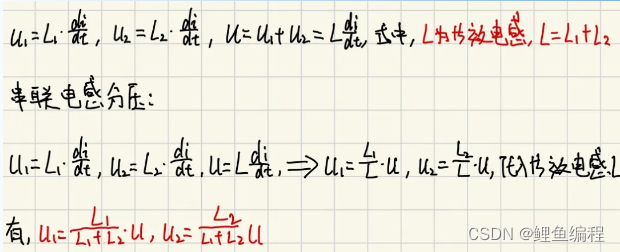 u₁=L₁·di/dt, u₂=L₂·di/dt, u=u₁+u₂=L di/dt, 式中, L为等效电感, L=L₁+L₂
串联电感分压:
u₁=L₁·di/dt, u₂=L₂·di/dt, u=L di/dt, ⟹ u₁=L₁/L·u, u₂=L₂/L·u, 代入等效电感L
有, u₁=L₁/(L₁+L₂)·u, u₂=L₂/(L₁+L₂)u
CSDN @鲤鱼编程